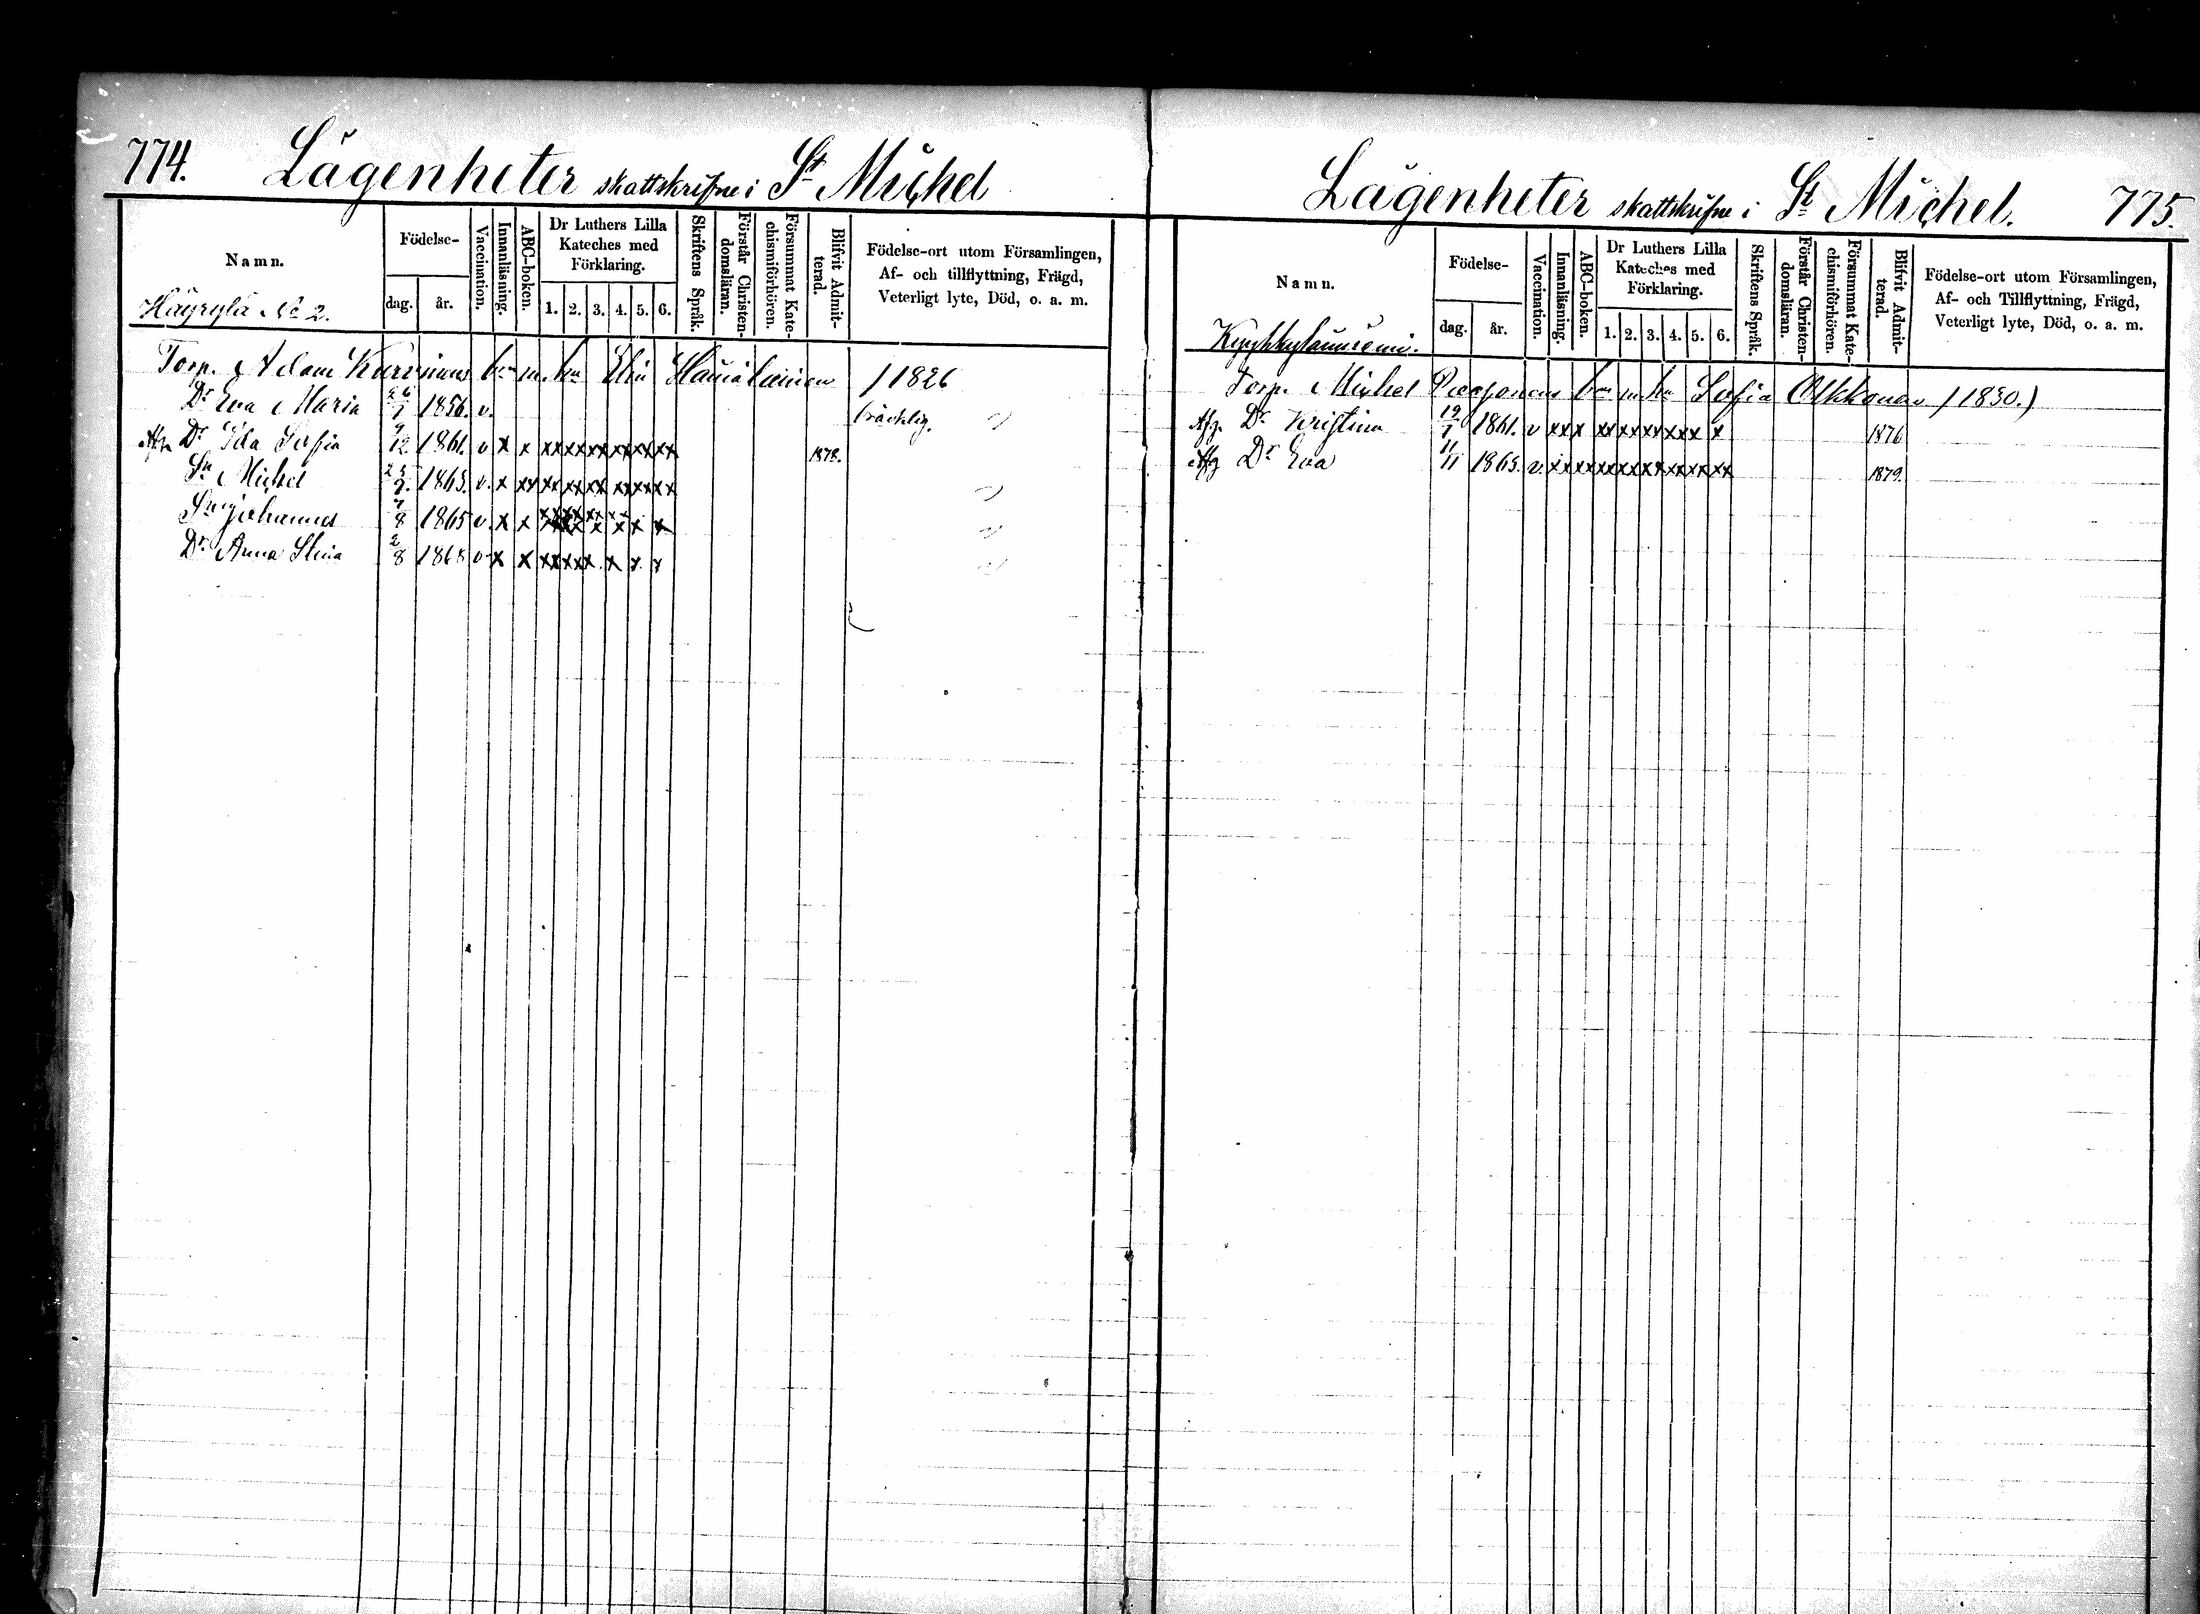 774. Lägenheter skattskrifne i St Michel
Namn.
Födelse-
dag.
år.
Vaccination.
Innanläsning.
ABC-boken.
Dr Luthers Lilla
Kateches med
Förklaring.
1. 2. 3. 4. 5. 6.
Skriftens Språk.
Förstår Christen-
domsläran.
Försummat Kate-
chismiförhören.
Blifvit Admit-
terad.
Födelse-ort utom Församlingen,
Af- och tillflyttning, Frägd,
Veterligt lyte, Död, o. a. m.
Häyrylä No 2.
Torp. Adam Kurvinens bn m. hu Elin /1826
Dr Eva Maria 26/7 1856. v. bräcklig.
Afg. Dr Ida Sofia 9/12. 1861. v x x xxxxxxxxxxxx 1878.
Sn Michel 25/7. 1863. v. x xx xx xx xx xx xx xx
Sn Johannes 7/8 1865 v. x x xx xx x x x x
Dr Anna Stina 2/8 1868 v x x xxxxx. x x. x
Lägenheter skattskrifne i St Michel. 775.
Namn.
Födelse-
dag.
år.
Vaccination.
Innanläsning.
ABC-boken.
Dr Luthers Lilla
Kateches med
Förklaring.
1. 2. 3. 4. 5. 6.
Skriftens Språk.
Förstår Christen-
domsläran.
Försummat Kate-
chismiförhören.
Blifvit Admit-
terad.
Födelse-ort utom Församlingen,
Af- och Tillflyttning, Frägd,
Veterligt lyte, Död, o. a. m.
Torp. Michel Paasonens bn m. hu Sofia Olkkonen /1830.)
Afg. Dr Kristina 19/7 1861. v xxx xxxxxxxxx x 1876
Afg Dr Eva 11/11 1863. v. xxxxxxxxxxxxxxx 1879.